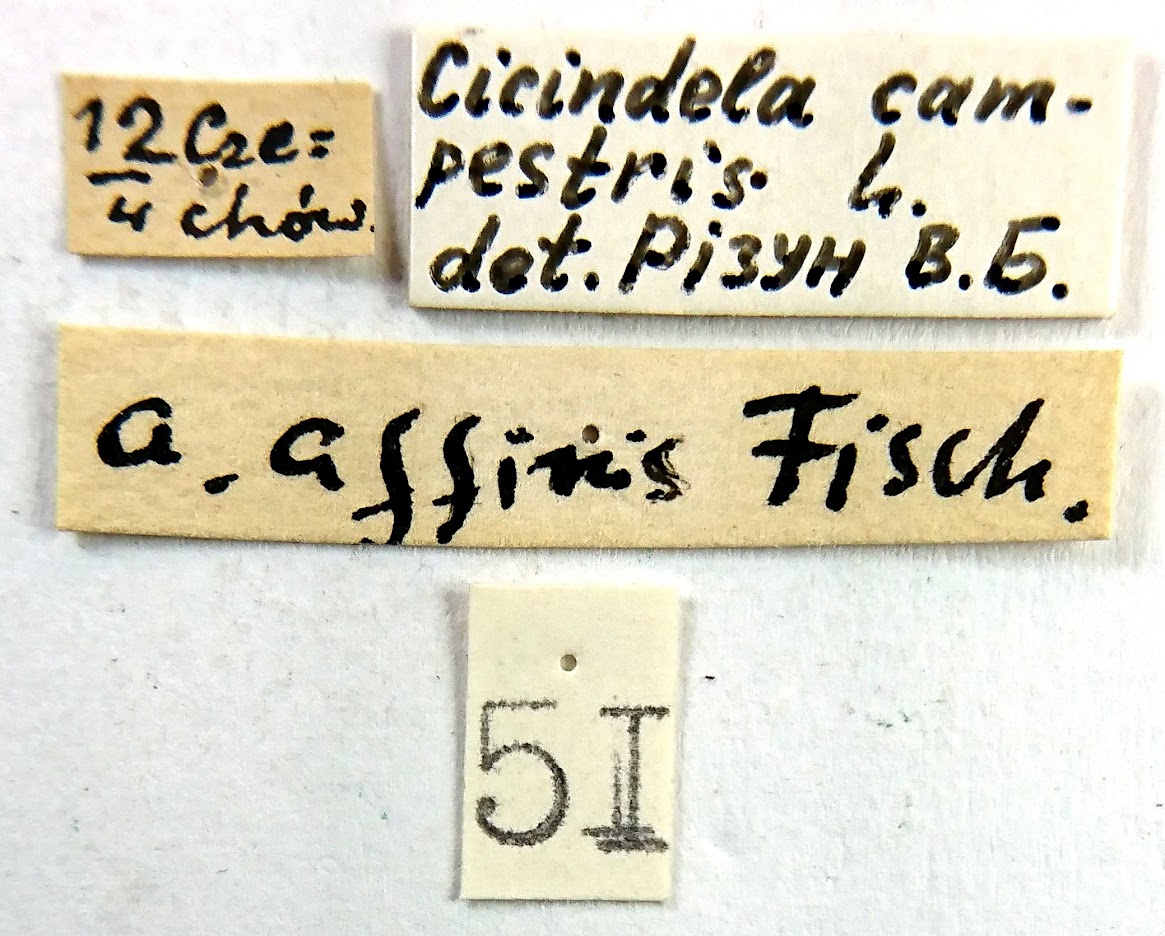 12 Cze=
4 chów.
Cicindela cam-
pestris L.
det. Різун В.Б.
a. affinis Fisch.
5I